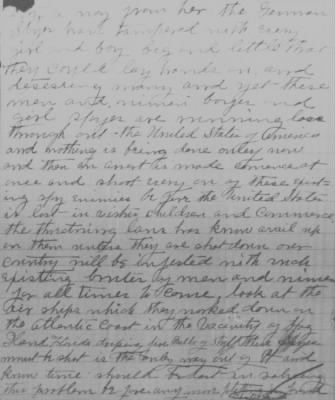 away from her the German
Spyes have tampered with every
girl and boy big and little that
they could lay hands on and
deseising many and yet these
men and nimin boyes and
girl spyes are running loss
through out the United States of America
and nothing is being done onley now
and then an arrest is made comence at
once and shoot every on of these
spy enemies be fore the United States
is lost in wishes children and Commence
the thretning lans has know avail up
on them unless they are shot down over
country will be infested with such
brutes of men and nimin
for all times to come, look at the
air ships which they nocked down on
the Atlantic Coast in the Vacinity of
Florida
must be shot is the onley way out of it and
know time should be lost in solving
this problem be fore any more